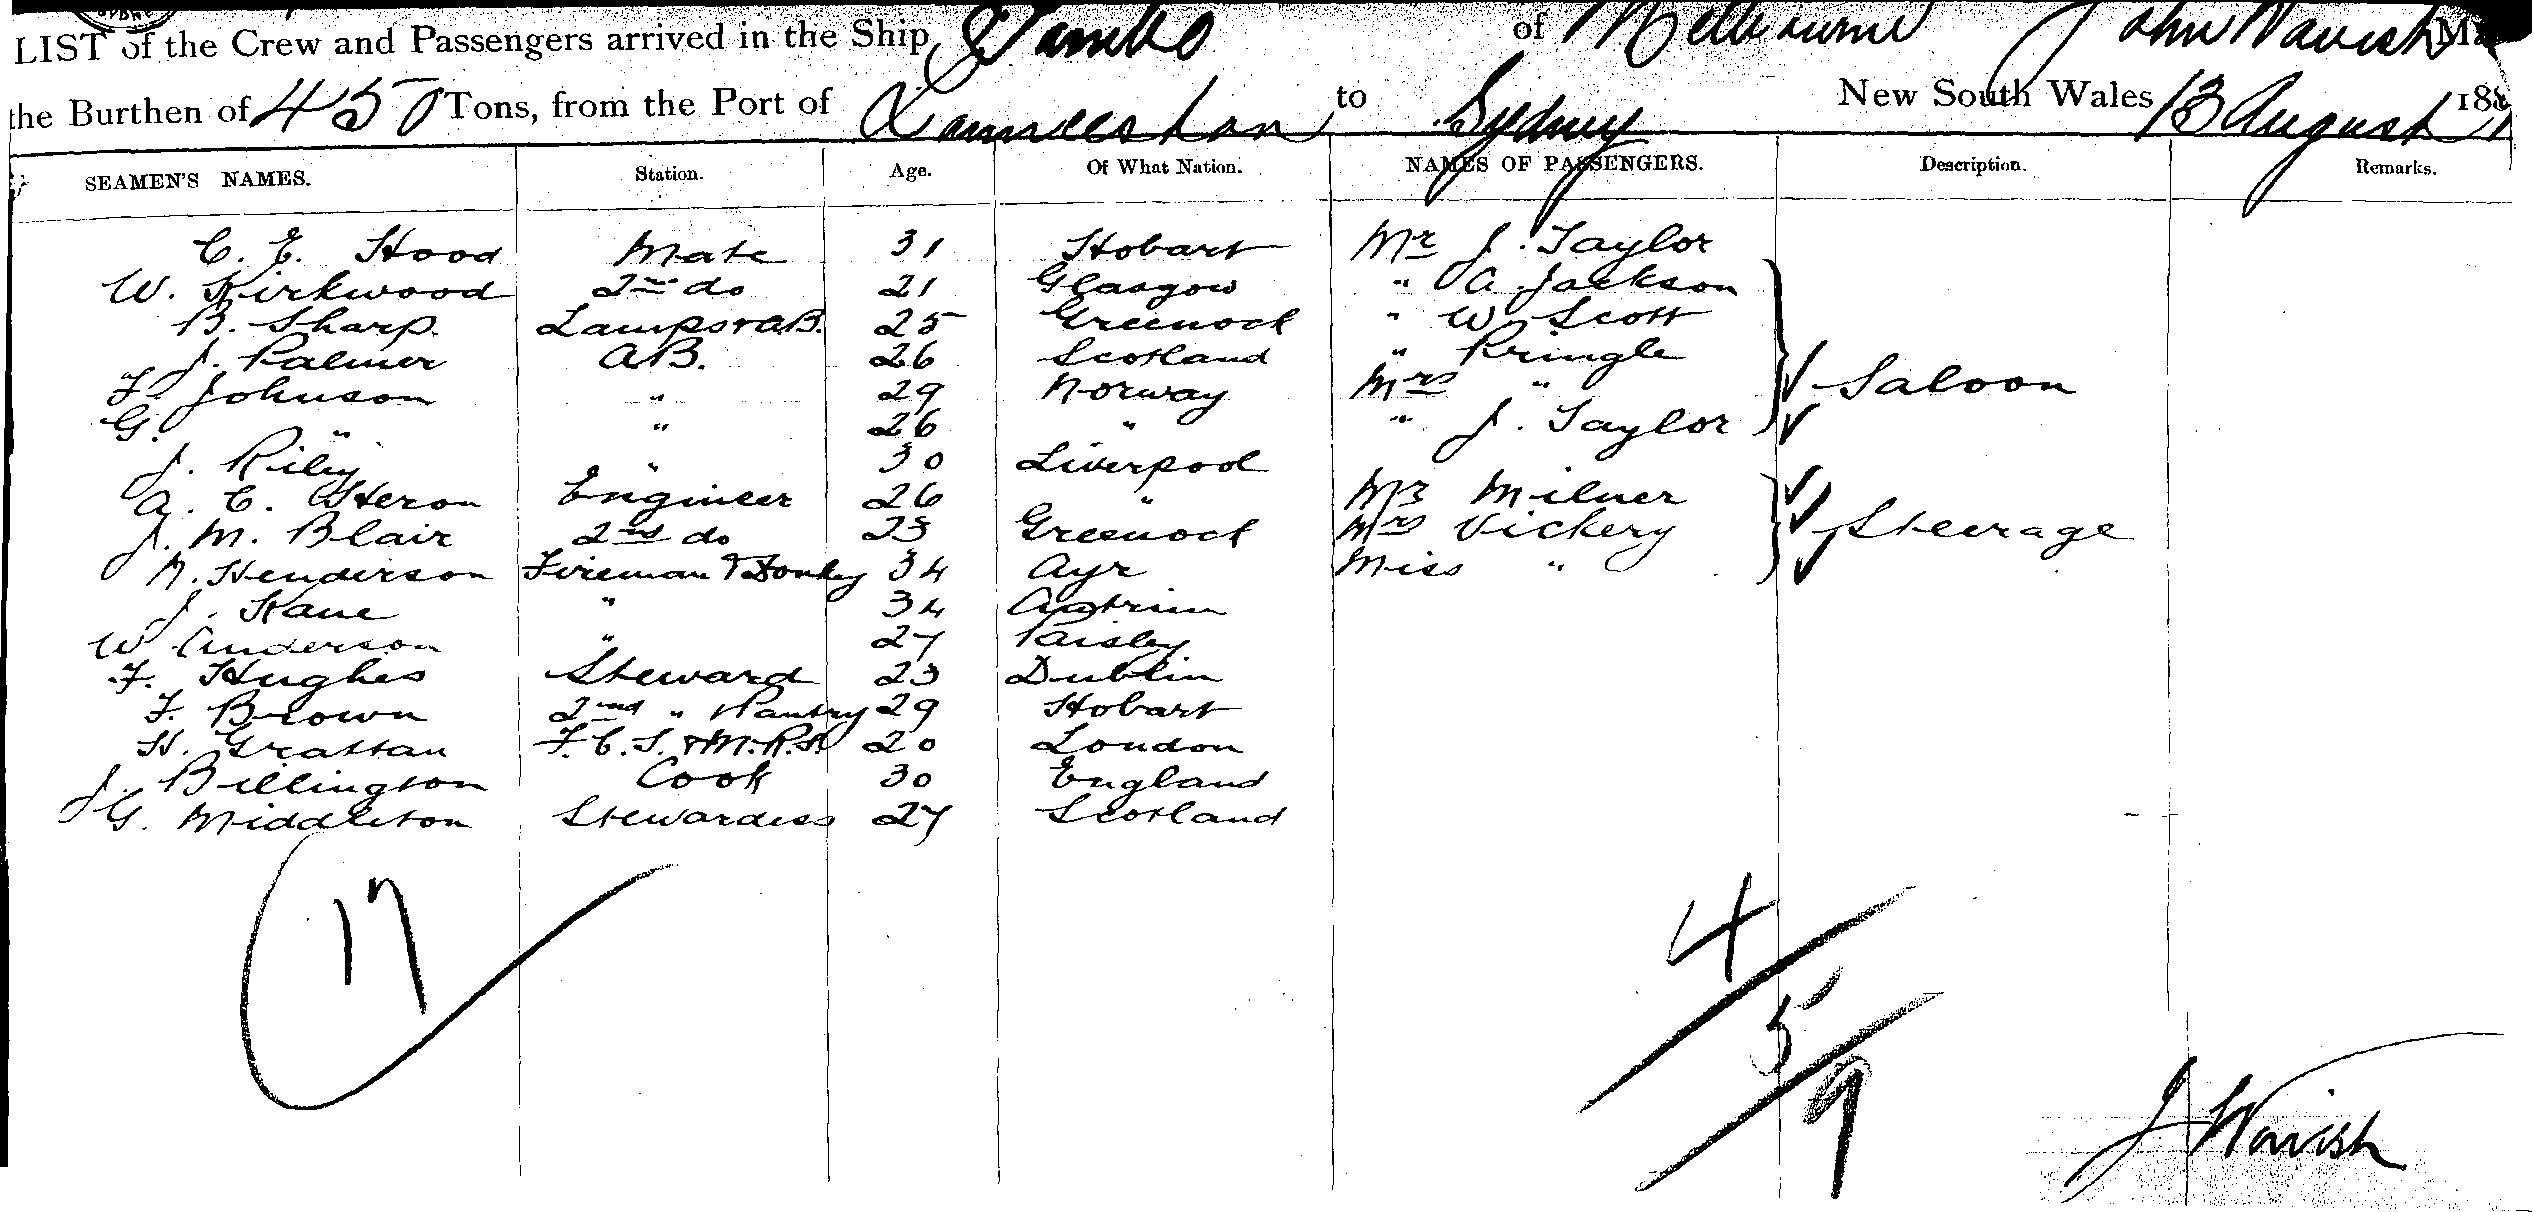 LIST of the Crew and Passengers arrived in the Ship Tambo of Melbourne John Wavish
the Burthen of 450 Tons, from the Port of Launceston to Sydney New South Wales 13 August 188
SEAMEN'S NAMES. Station. Age. Of What Nation. NAMES OF PASSENGERS. Description. Remarks.
C. E. Hood Mate 31 Hobart Mr J. Taylor
W. Kirkwood 2nd do 21 Glasgow " A. Jackson
B. Sharp. Lamps & A.B. 25 Greenock " W Scott
J. Palmer A.B. 26 Scotland " Pringle
F. Johnson " 29 Norway Mrs " Saloon
G. " " 26 " " J. Taylor
J. Riley " 30 Liverpool
A. C. Heron Engineer 26 " Mr Milner
J. M. Blair 2nd do 23 Greenock Mrs Vickery Steerage
Henderson Fireman & Donkey 34 Ayr Miss "
J. Kane " 34 Antrim
W Anderson " 27 Paisley
F. Hughes Steward 23 Dublin
F. Brown 2nd " Pantry 29 Hobart
H. Grattan F.C.S. & M.R.S. 20 London
J. Billington Cook 30 England
G. Middleton Stewardess 27 Scotland
17
4
5
9
J Wavish